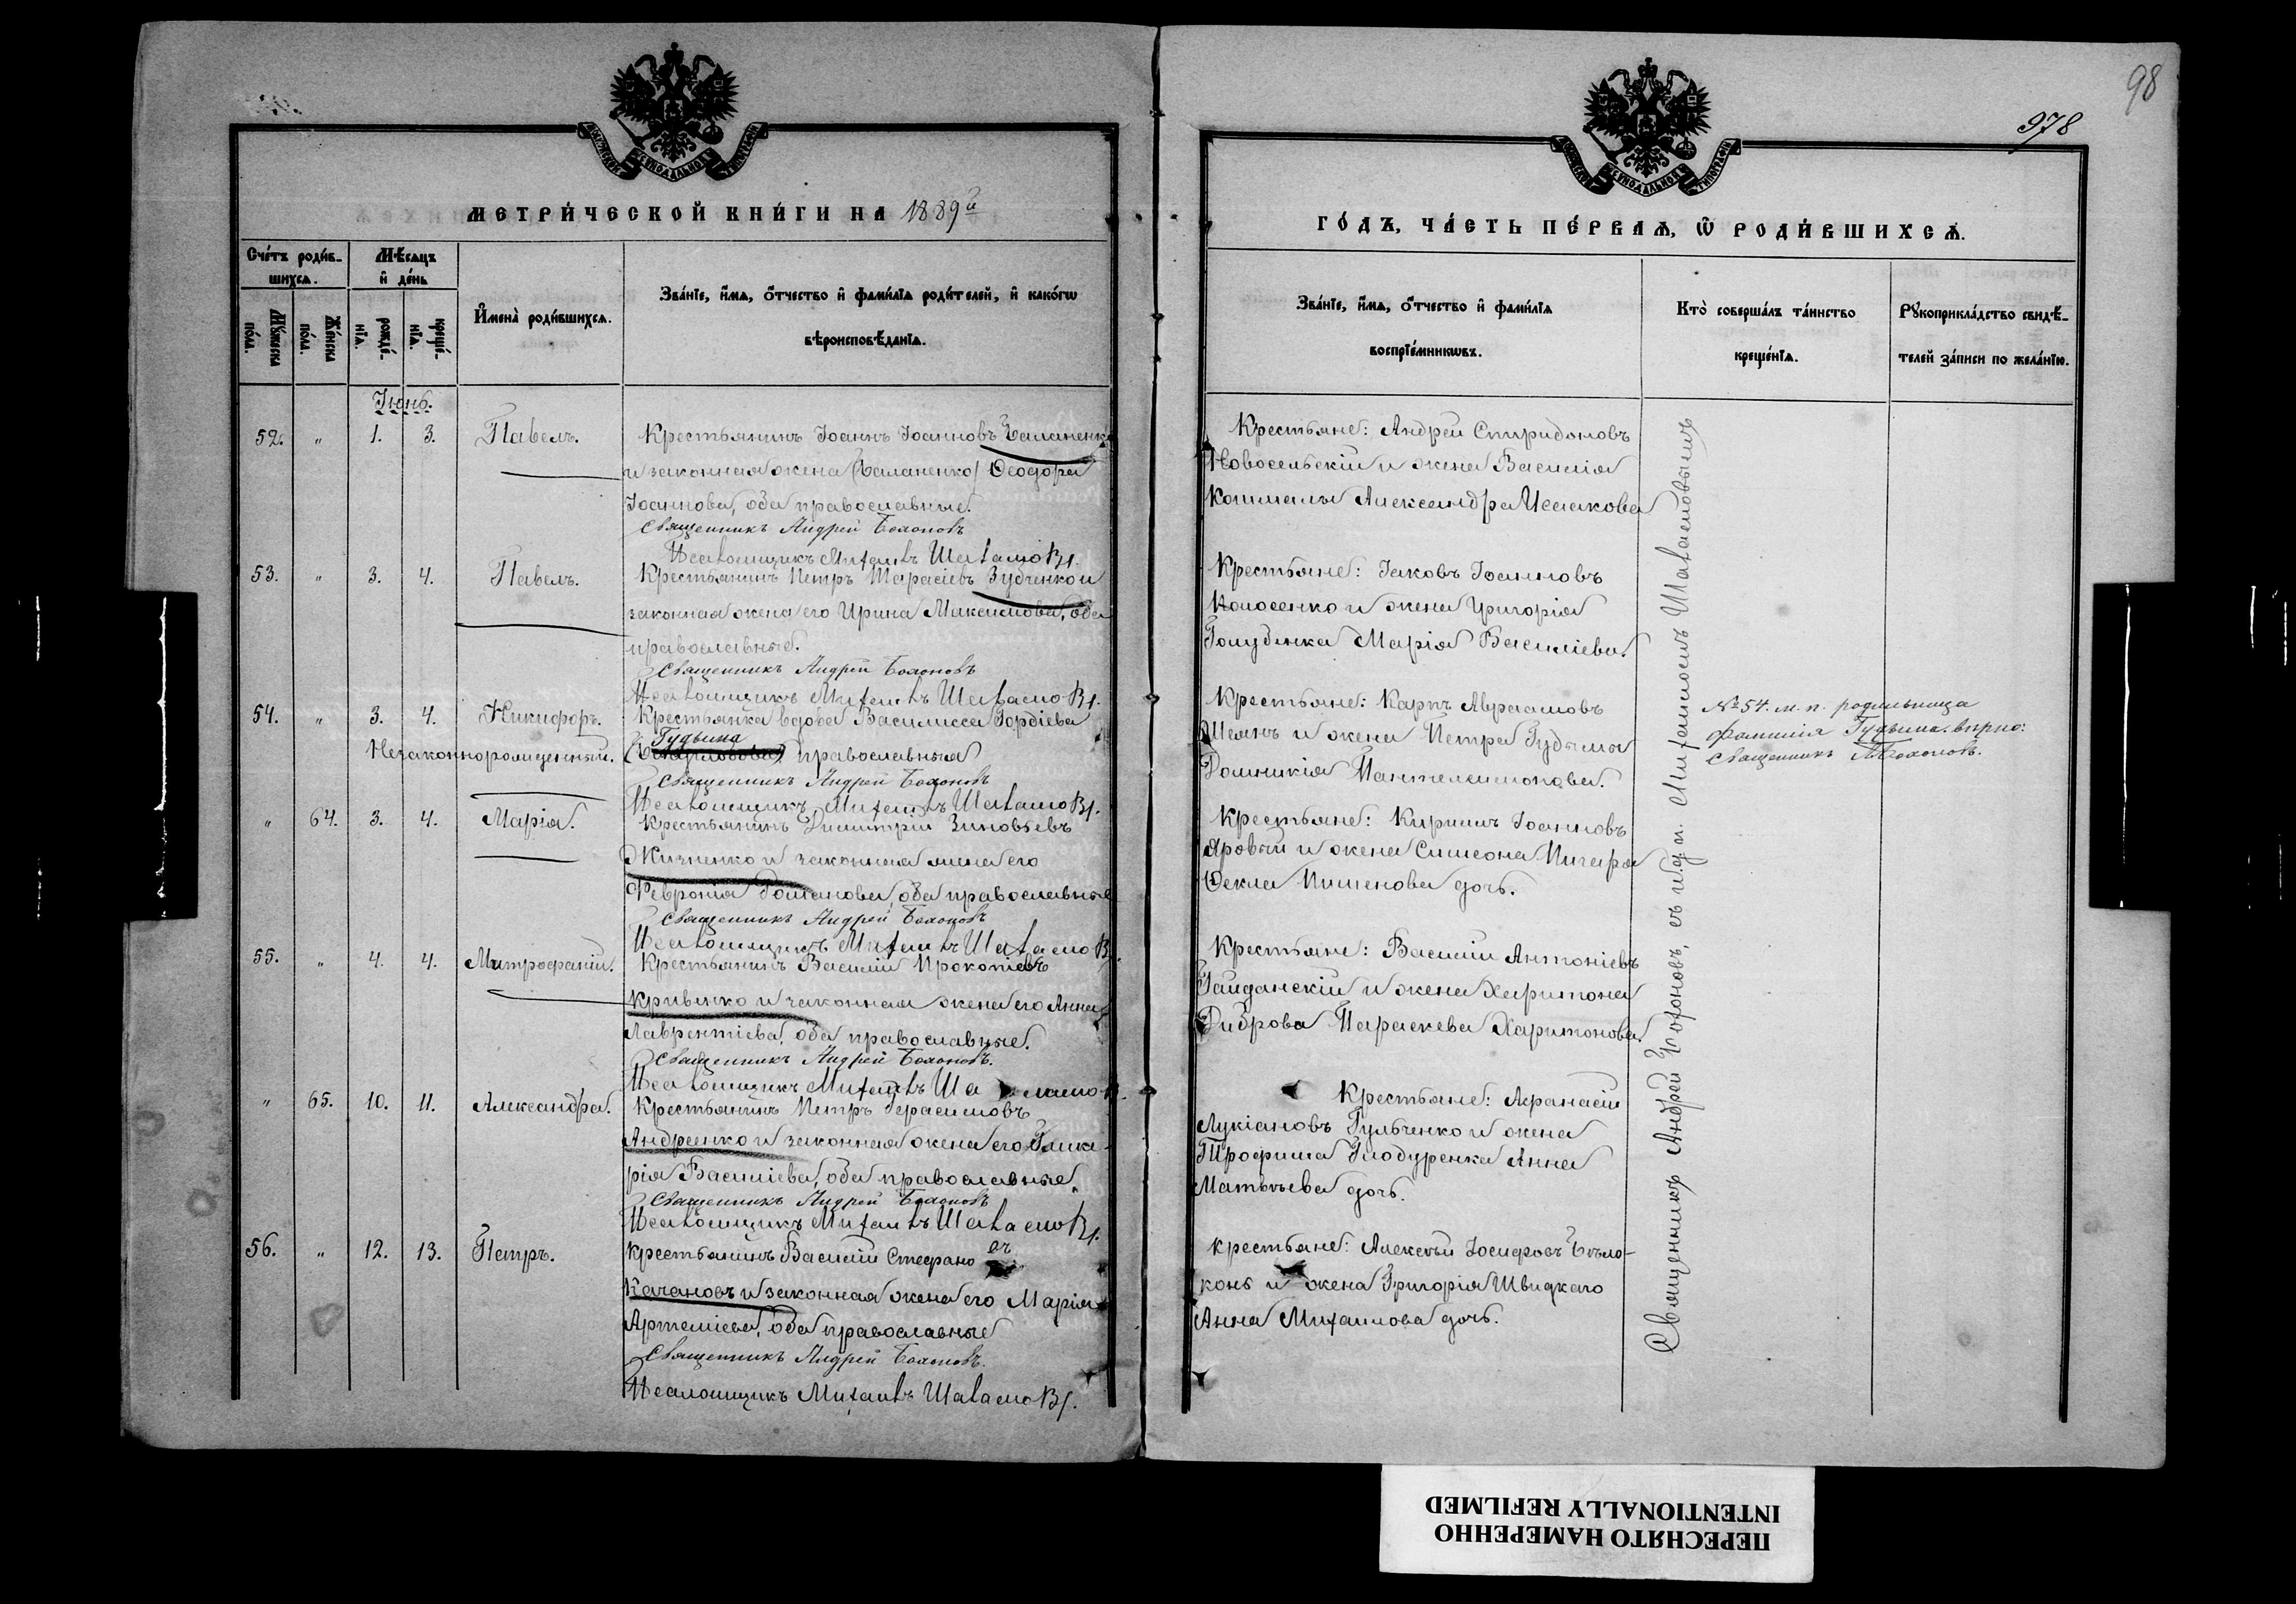 98
978
МЕТРИ́ЧЕСКОЙ КНИ́ГИ НА 1889й
ГО́ДЪ, ЧА́СТЬ ПЕ́РВАѦ, Ѽ РОДИ́ВШИХСѦ.
Сче́тъ роди́в-
шихсѧ.
Мꙋ́жеска по́ла.
Же́нска по́ла.
Мѣ́сѧцъ
и҆ де́нь
рожде́-
нїѧ.
креще́-
нїѧ.
И҆мена̀ роди́вшихсѧ.
Зва́нїе, и҆́мѧ, ѻ҆́тчество и҆ фами́лїѧ роди́телей, и҆ како́гѡ
вѣроисповѣ́данїѧ.
Зва́нїе, и҆́мѧ, ѻ҆́тчество и҆ фами́лїѧ
воспрїе́мникѡвъ.
Кто̀ соверша́лъ та́инство
креще́нїѧ.
Рꙋкоприкла́дство свидѣ́-
телей за́писи по жела́нїю.
Іюнь.
52. " 1. 3. Павелъ.
Крестьянинъ Іоаннъ Іоанновъ Баланенко
и законная жена (Баланенко) Ѳеодора
Іоаннова, оба православные.
Священникъ Андрей
Псаломщикъ Михаилъ
Крестьяне: Андрей Спиридоновъ
Новосельскій и жена Василія
Александра Исаакова
53. " 3. 4. Павелъ.
Крестьянинъ Петръ Тарасіевъ Зубченко и
законная жена его Ирина Максимова, оба
православные.
Священникъ Андрей
Псаломщикъ Михаилъ
Крестьяне: Іаковъ Іоанновъ
Колосенко и жена Григорія
Голубенка Марія Василіева.
54. " 3. 4. Никифоръ.
Незаконнорожденный.
Крестьянка вдова Василисса Гордіева
Гудыма
православная
Священникъ Андрей
Псаломщикъ Михаилъ
Крестьяне: Карпъ Авраамовъ
и жена Петра Гудымы
Домникія Пантелеимонова.
№54. м. п. родильница
фамилія Гудыма. вѣрно:
Священникъ
" 64. 3. 4. Марія.
Крестьянинъ Димитрій Зиновьевъ
Жизненко и законная жена его
Февронія Романова, оба православные
Священникъ Андрей
Псаломщикъ Михаилъ
Крестьяне: Кириллъ Іоанновъ
Яровый и жена Симеона
Ѳекла Пименова дочь.
55. " 4. 4. Митрофаній.
Крестьянинъ Василій Прокопіевъ
Кривенко и законная жена его Анна
Лаврентіева, оба православные.
Священникъ Андрей
Псаломщикъ Михаилъ
Крестьяне: Василій Антоніевъ
Гайданскій и жена Харитона
Диброва Параскева Харитонова.
" 65. 10. 11. Александра.
Крестьянинъ Петръ Герасимовъ
Андреенко и законная жена его Глике-
рія Василіева, оба православные.
Священникъ Андрей
Псаломщикъ Михаилъ
Крестьяне: Афанасій
Лукіановъ Гульченко и жена
Трофима Анна
Матѳѣева дочь.
56. " 12. 13. Петръ.
Крестьянинъ Василій Стефановъ
Качановъ и законная жена его Марія
Артеміева, оба православные
Священникъ Андрей
Псаломщикъ Михаилъ
Крестьяне: Алексѣй Іосифовъ Бѣло-
конь и жена Григорія Швидкаго
Анна Михаилова дочь.
Священникъ Андрей
ПЕРЕСНЯТО НАМЕРЕННО
INTENTIONALLY REFILMED